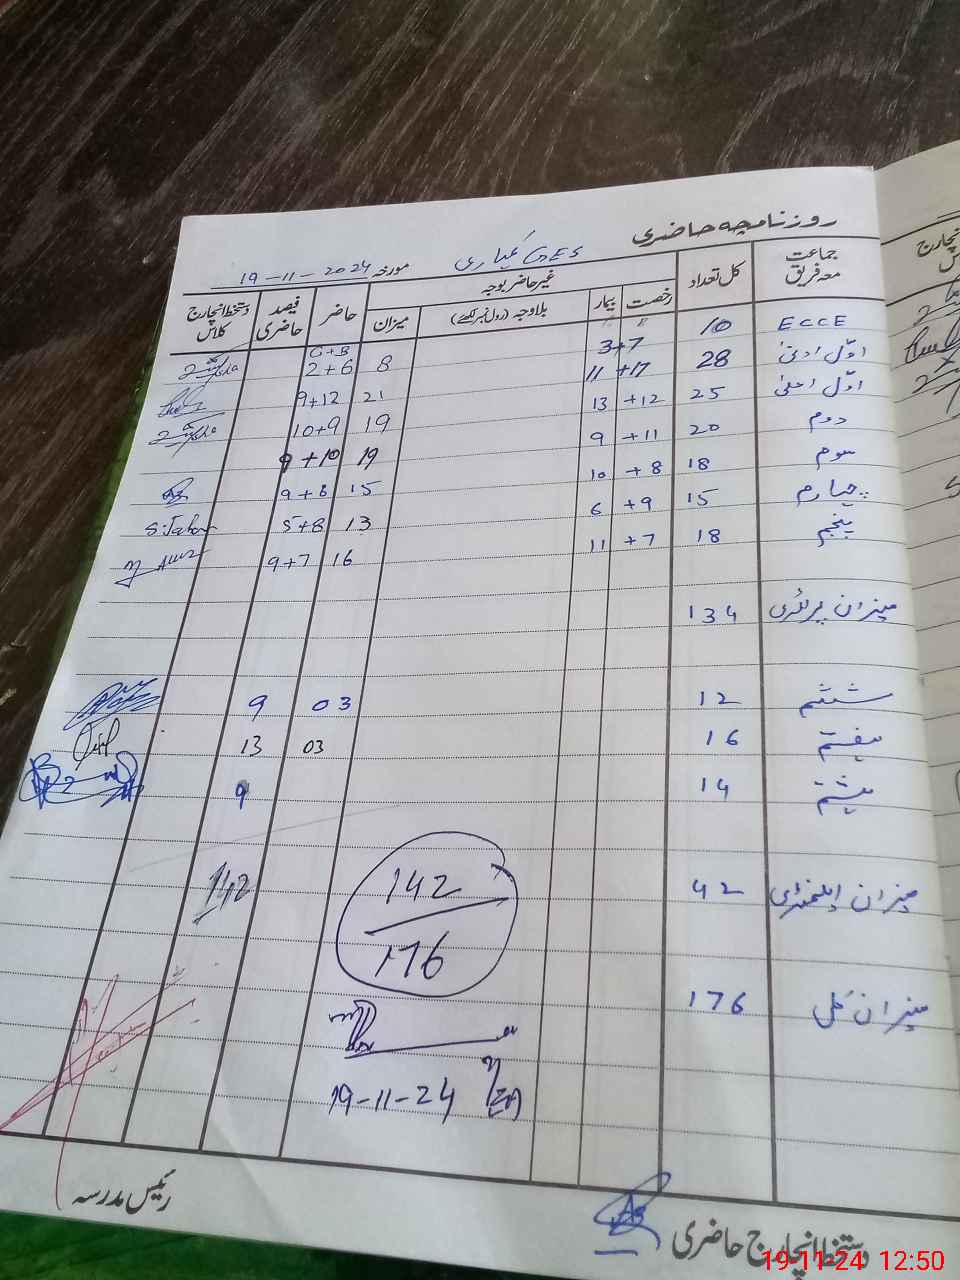 روزنامچہ حاضری
GES کیاری مورخہ 19-11-2024
جماعت معہ فریق کل تعداد غیر حاضر بوجہ حاضر فیصد حاضری دستخط انچارج کلاس
رخصت بیمار بلاوجہ (رول نمبر لکھئے) میزان
ECCE 10 3+7 8 G+B 2+6
اوّل ادنیٰ 28 11+17 21 9+12
اوّل اعلیٰ 25 13+12 19 10+9
دوم 20 9+11 19 9+10
سوم 18 10+8 15 9+8
چہارم 15 6+9 13 5+8
پنجم 18 11+7 16 9+7
میزان پرائمری 134
ششم 12 03 9
ہفتم 16 03 13
ہشتم 14 9
میزان ایلمنٹری 42 142
142
176
میزان کلی 176
19-11-24
رئیس مدرسہ
دستخط انچارج حاضری
19-11-24 12:50